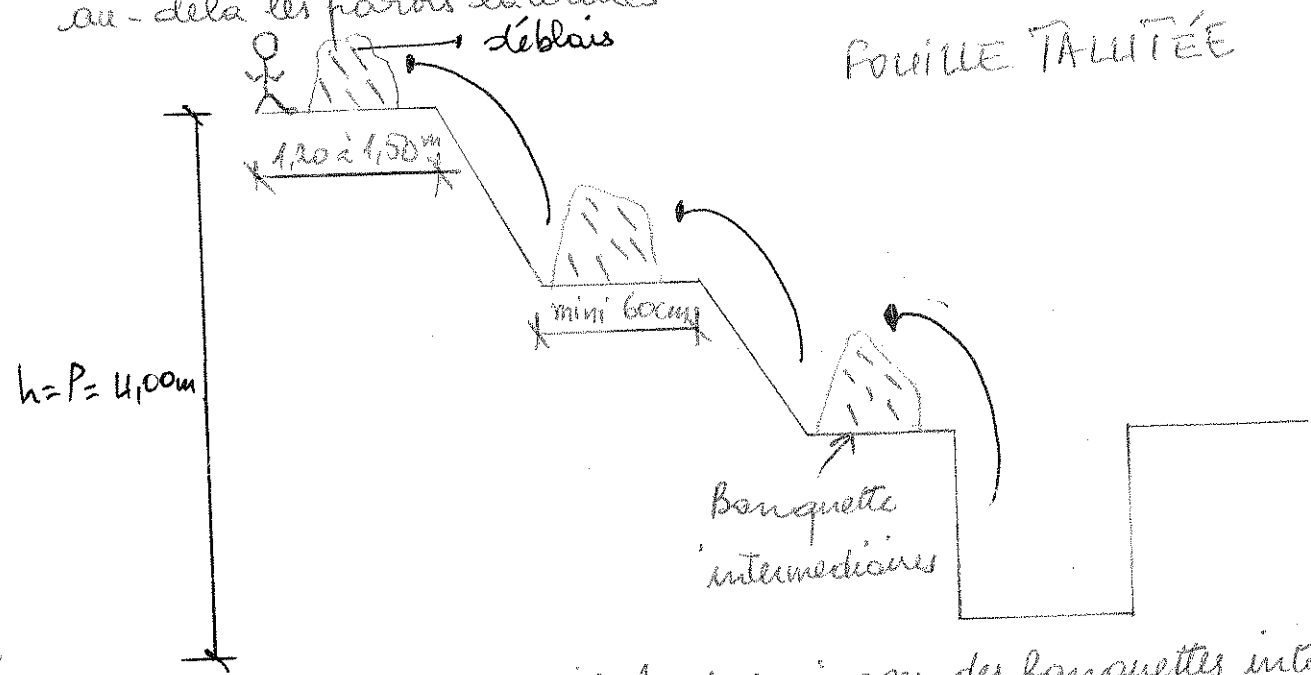 au-delà les parois
déblais
FOUILLE TALUTÉE
1,20 à 1,50m
mini 60cm
h=P= 4,00m
Banquette
intermediaires
des banquettes inte